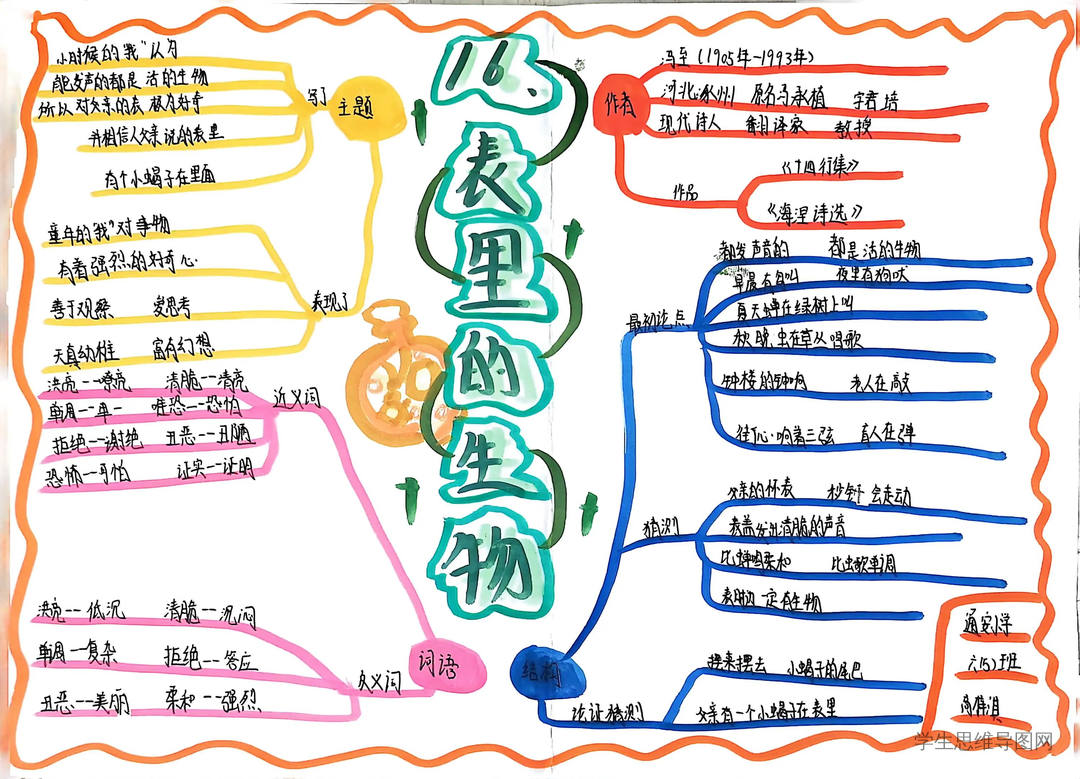 16、表里的生物
主题
写了
小时候的"我"认为
能发声的都是 活的生物
所以 对父亲的表 极为好奇
并相信父亲说的表里
有个小蝎子在里面
表现了
童年的"我"对事物
有着强烈的好奇心
善于观察 爱思考
天真幼稚 富有幻想
词语
近义词
洪亮--嘹亮 清脆--清亮
单调--单一 唯恐--恐怕
拒绝--谢绝 丑恶--丑陋
恐怖--可怕 证实--证明
反义词
洪亮--低沉 清脆--沉闷
单调--复杂 拒绝--答应
丑恶--美丽 柔和--强烈
作者
冯至(1905年-1993年)
河北涿州 原名冯承植 字君培
现代诗人 翻译家 教授
作品
《十四行集》
《海涅诗选》
结构
最初论点
都发声音的 都是活的生物
早晨有鸟叫 夜里有狗吠
夏天蝉在绿树上叫
秋晚,虫在草丛唱歌
钟楼的钟响 老人在敲
往心响着三弦 盲人在弹
猜测
父亲的怀表 秒针会走动
表盖发出清脆的声音
比蝉鸣柔和 比虫歌单调
表明一定有生物
论证猜测
摆来摆去 小蝎子的尾巴
父亲有一个小蝎子在表里
六(5)班
学生思维导图网